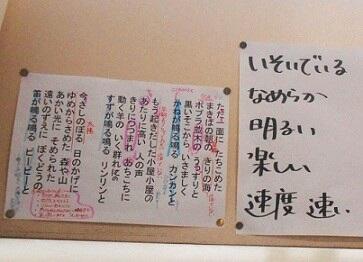 ただ一面に 立ちこめた
まきばの朝の きりの海
ポプラ並木の うっすりと
黒いそこから いさましく
かねが鳴る鳴る カンカンと
もう起きだした小屋小屋の
あたりに高い 人の声
きりにつつまれ あちこちに
動く羊の いく群れの
すずが鳴る鳴る リンリンと
今さしのぼる 日のかげに
ゆめからさめた 森や山
あかい光に そめられた
遠いのずえに ぼくどうの
笛が鳴る鳴る ピーピーと
いそいでいる
なめらか
明るい
楽しい
速度 速い